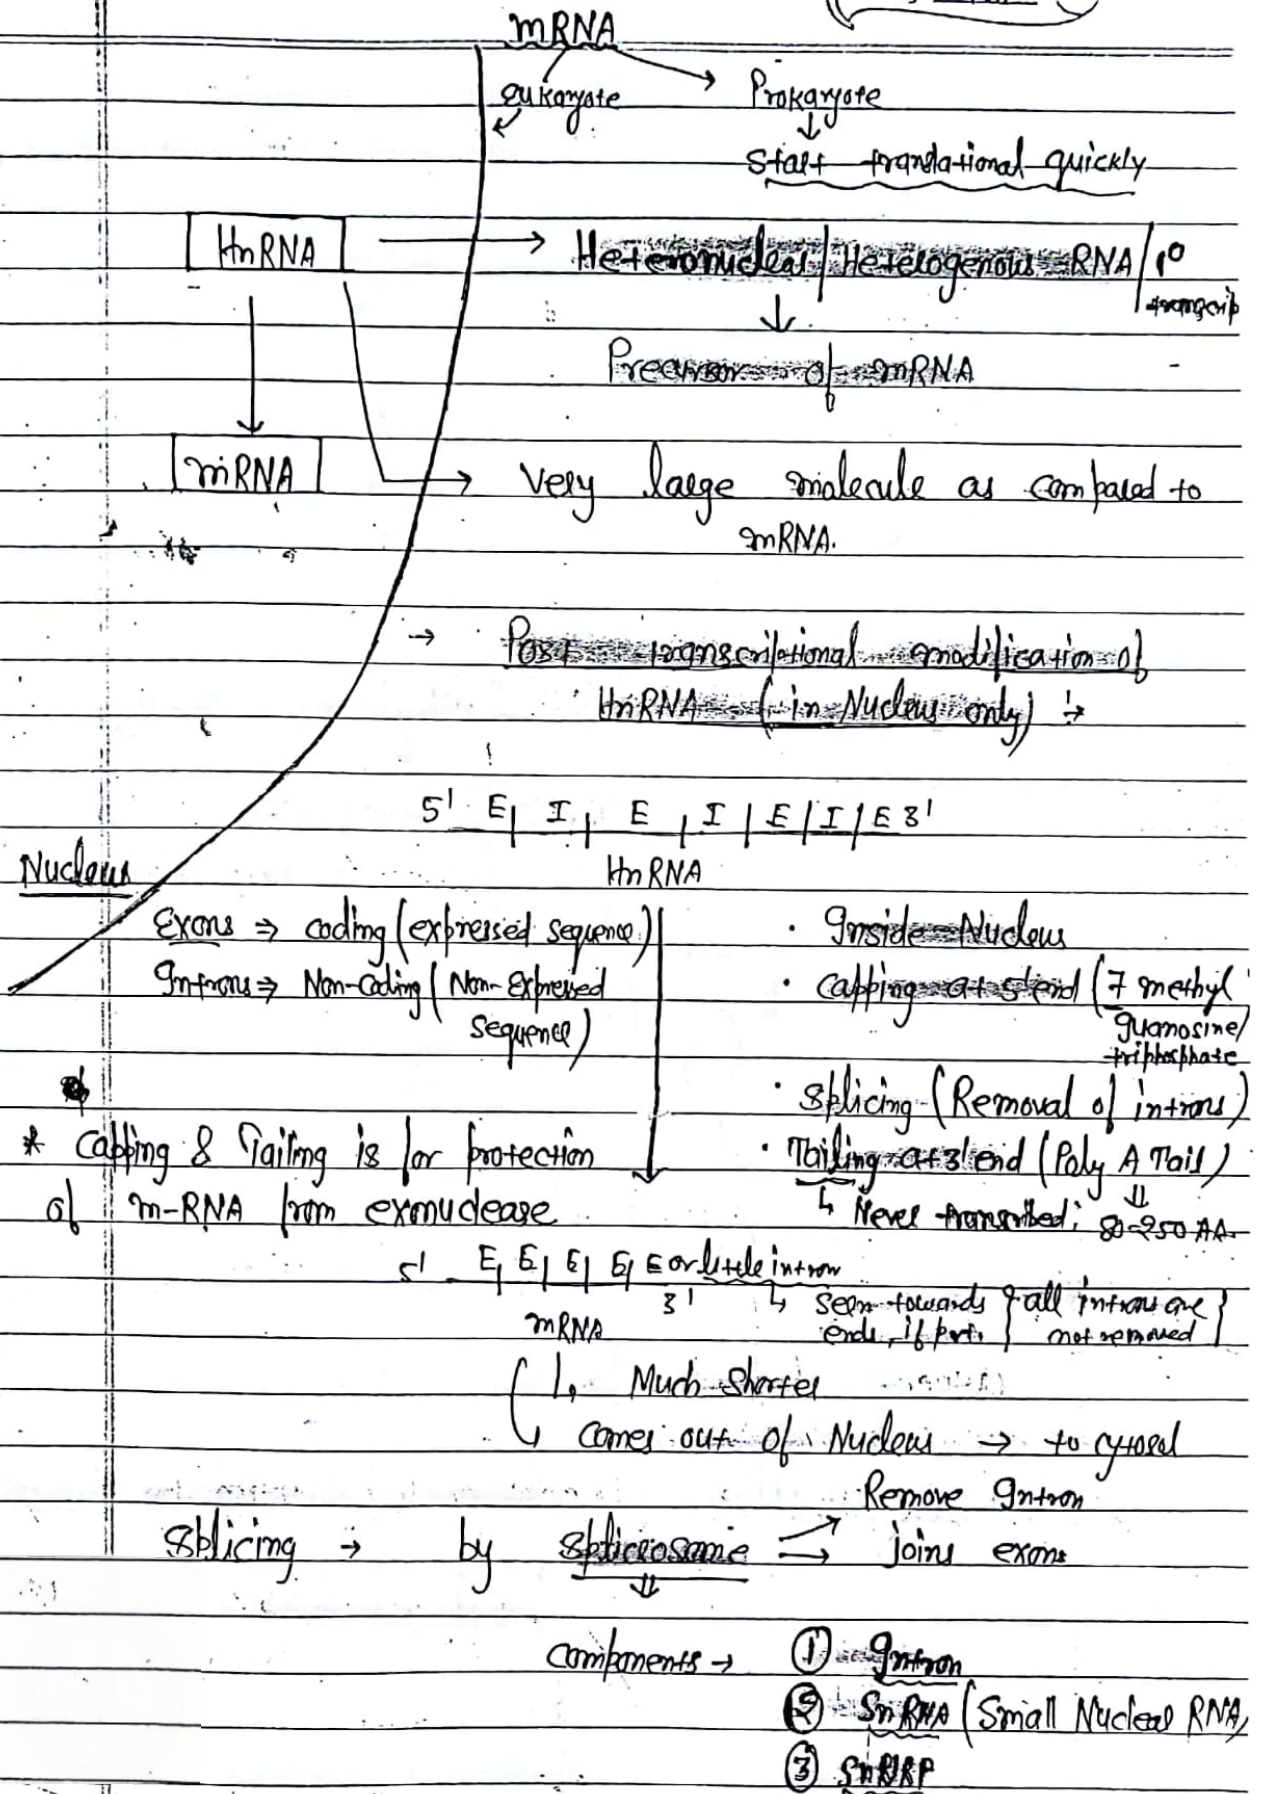 mRNA
Eukaryote
Prokaryote
Start translational quickly
HnRNA
Heteronuclear/Heterogenous RNA/1°
transcrip
Precursor of mRNA
mRNA
Very large molecule as compared to
mRNA.
→ Post transcriptional modification of
HnRNA (in Nucleus only) :→
5' E | I | E | I | E | I | E 3'
HnRNA
Nucleus
Exons ⇒ coding (expressed sequence)
Introns ⇒ Non-Coding (Non-Expressed
sequence)
• Inside Nucleus
• Capping at 5' end (7 methyl
guanosine/
triphosphate
• Splicing (Removal of introns)
• Tailing at 3' end (Poly A Tail)
↳ Never transcribed; 80-250 AA
* Capping & Tailing is for protection
of m-RNA from exonuclease
5' E | E | E | E | E or little intron
3'
↳ Seen towards
ends, if
all introns are
not removed
mRNA
↳ Much Shorter
↳ Comes out of Nucleus → to cytosol
Splicing → by Spliceosome
Remove Intron
joins exons
Components →
① Intron
② SnRNA (Small Nuclear RNA)
③ SnRNP